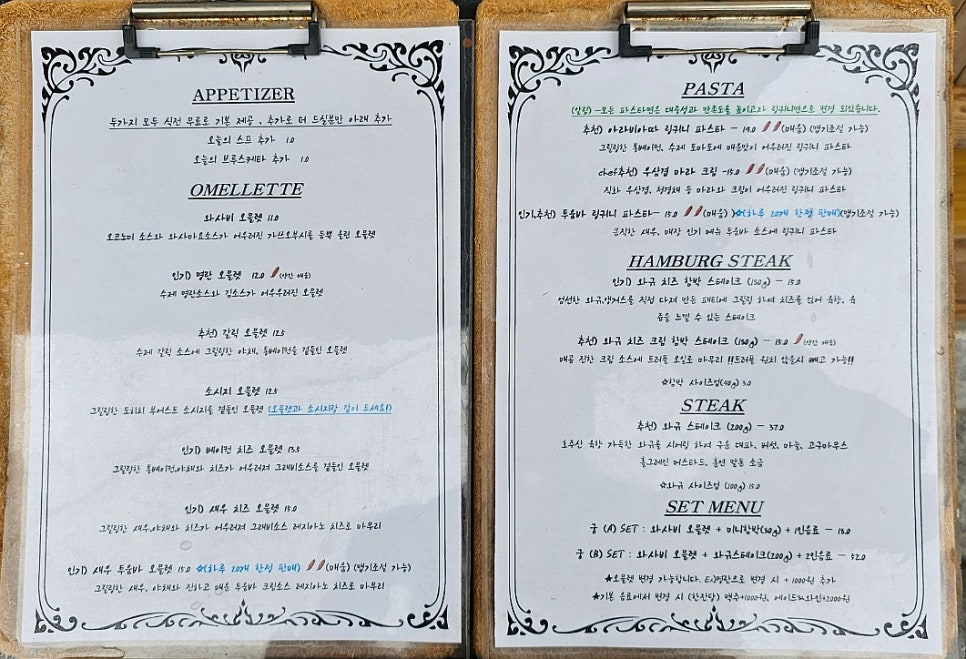 APPETIZER
두가지 모두 식전 무료로 기본 제공, 추가로 더 드실분만 아래 추가
오늘의 스프 추가 1.0
오늘의 브루스케타 추가 1.0
OMELLETTE
와사비 오믈렛 11.0
오코노미 소스와 와사마요소스가 어우러진 가쓰오부시를 듬뿍 올린 오믈렛
인기) 명란 오믈렛 12.0 (약간 매움)
수제 명란소스와 김소스가 어우우러진 오믈렛
추천) 갈릭 오믈렛 12.5
수제 갈릭 소스에 그릴링한 야채, 통베이컨을 곁들인 오믈렛
소시지 오믈렛 12.5
그릴링한 도이치 부어스트 소시지를 곁들인 오믈렛 (오믈렛과 소시지랑 같이 드세요!)
인기) 베이컨 치즈 오믈렛 13.5
그릴링한 통베이컨,야채와 치즈가 어우러져 그래비소스를 곁들인 오믈렛
인기) 새우 치즈 오믈렛 15.0
그릴링한 새우,야채와 치즈가 어우러져 그래비소스 레지아노 치즈로 마무리
인기) 새우 투움바 오믈렛 15.0 ☆(하루 20개 한정 판매) (매움) (맵기조절 가능)
그릴링한 새우, 야채와 진하고 매운 투움바 크림소스 레지아노 치즈로 마무리
PASTA
(알림) -모든 파스타면은 대중성과 만족도를 높이고자 링귀니면으로 변경 되었습니다.
추천) 아라비아따 링귀니 파스타 - 14.0 (매움) (맵기조절 가능)
그릴링한 통베이컨, 수제 토마토에 매운맛이 어우러진 링귀니 파스타
chef추천) 우삼겹 마라 크림 -15.0 (매움) (맵기조절 가능)
직화 우삼겹, 청경채 등 마라와 크림이 어우러진 링귀니 파스타
인기,추천) 투움바 링귀니 파스타- 15.0 (매움) )☆(하루 20개 한정 판매)(맵기조절 가능)
큼직한 새우, 매장 인기 메뉴 투움바 소스에 링귀니 파스타
HAMBURG STEAK
인기) 와규 치즈 함박 스테이크 (150g) - 15.0
엄선한 와규,앵거스를 직접 다져 만든 패티에 그릴링 하여 치즈를 얹어 육향, 육
즙을 느낄 수 있는 스테이크
추천) 와규 치즈 크림 함박 스테이크 (150g) - 15.0 (약간 매움)
매콤 진한 크림 소스에 트러플 오일로 마무리 !!트러플 원치 않을시 빼고 가능!!
☆함박 사이즈업(50g) 3.0
STEAK
추천) 와규 스테이크 (200g) - 37.0
호주산 육향 가득한 와규를 시어링 하여 구운 대파, 버섯, 마늘, 고구마무스
홀그레인 머스타드, 훈연 말돈 소금
☆와규 사이즈업 (100g) 15.0
SET MENU
궁 (A) SET : 와사비 오믈렛 + 미니함박(50g) + 1인음료 - 15.0
궁 (B) SET : 와사비 오믈렛 + 와규스테이크(200g) + 2인음료 - 52.0
★오믈렛 변경 가능합니다. Ex)명란으로 변경 시 + 1000원 추가
★기본 음료에서 변경 시 (한잔당) 맥주+1000원, 에이드&와인+2000원